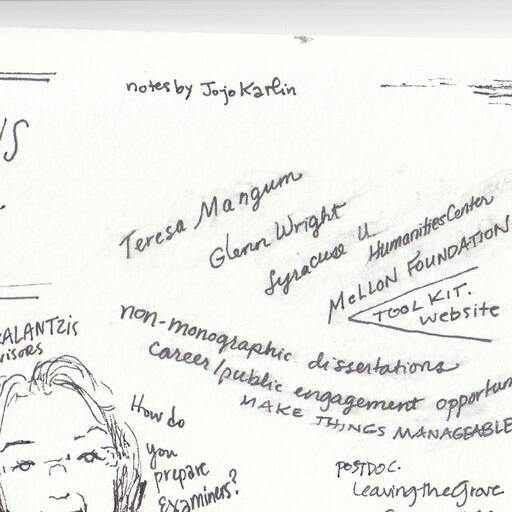 notes by Jojo Karlin
Teresa Mangum
Glenn Wright
Syracuse U
Humanities Center
MELLON FOUNDATION
TOOLKIT.
website
non-monographic dissertations
career/public engagement
MAKE THINGS MANAGEABLE
ALANTZIS
How do
you
prepare
examiners?
POSTDOC.
Leaving the Grove